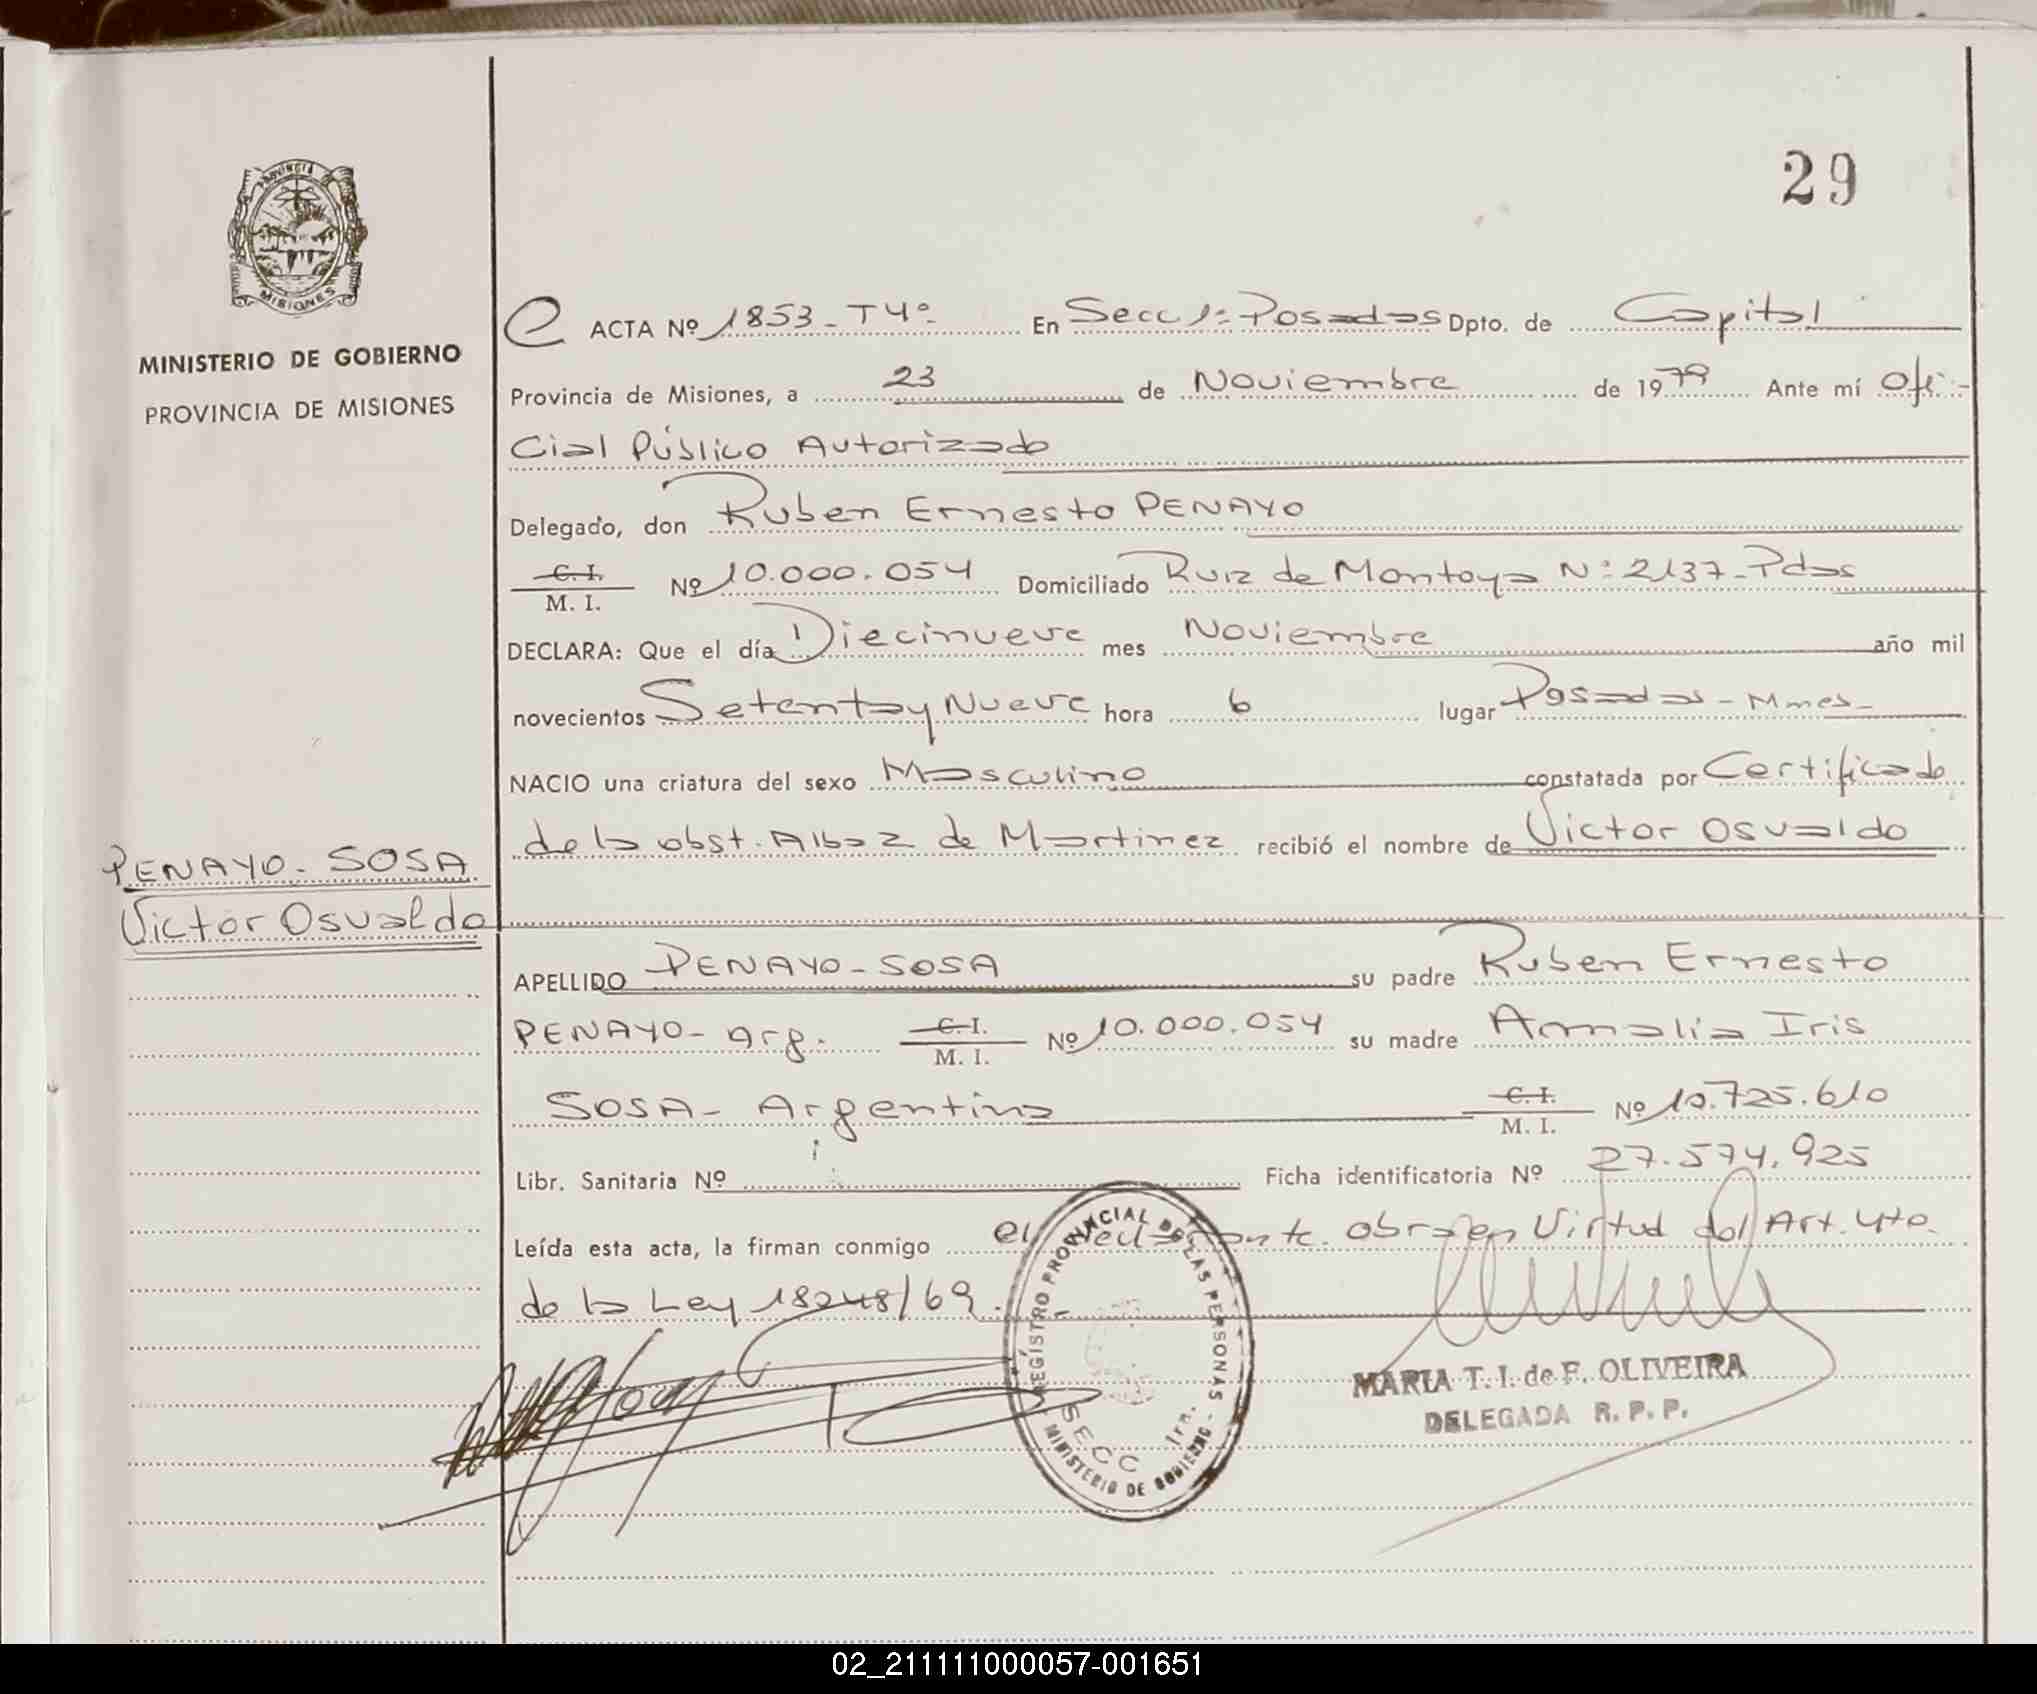 29
PROVINCIA
MISIONES
MINISTERIO DE GOBIERNO
PROVINCIA DE MISIONES
ACTA Nº 1853-T4º En Secc 1ª Posadas Dpto. de Capital
Provincia de Misiones, a 23 de Noviembre de 1979 Ante mí Ofi-
cial Público Autorizado
Delegado, don Ruben Ernesto PENAYO
C. I. / M. I. Nº 10.000.054 Domiciliado Ruiz de Montoya Nº 2137-Pdas
DECLARA: Que el día Diecinueve mes Noviembre año mil
novecientos Setenta y Nueve hora 6 lugar Posadas-Mnes-
NACIO una criatura del sexo Masculino constatada por Certificado
de la obst. Albaz de Martinez recibió el nombre de Victor Osvaldo
PENAYO-SOSA
Victor Osvaldo
APELLIDO PENAYO-SOSA su padre Ruben Ernesto
PENAYO- Arg. C. I. / M. I. Nº 10.000.054 su madre Amalia Iris
SOSA- Argentina C. I. / M. I. Nº 10.725.610
Libr. Sanitaria Nº Ficha identificatoria Nº 27.574.925
Leída esta acta, la firman conmigo el declarante. obra en Virtud del Art. 4to.
de la Ley 18248/69.
REGISTRO PROVINCIAL DE LAS PERSONAS
SECC 1ra.
MINISTERIO DE GOBIERNO
MARIA T. I. de F. OLIVEIRA
DELEGADA R. P. P.
02_211111000057-001651